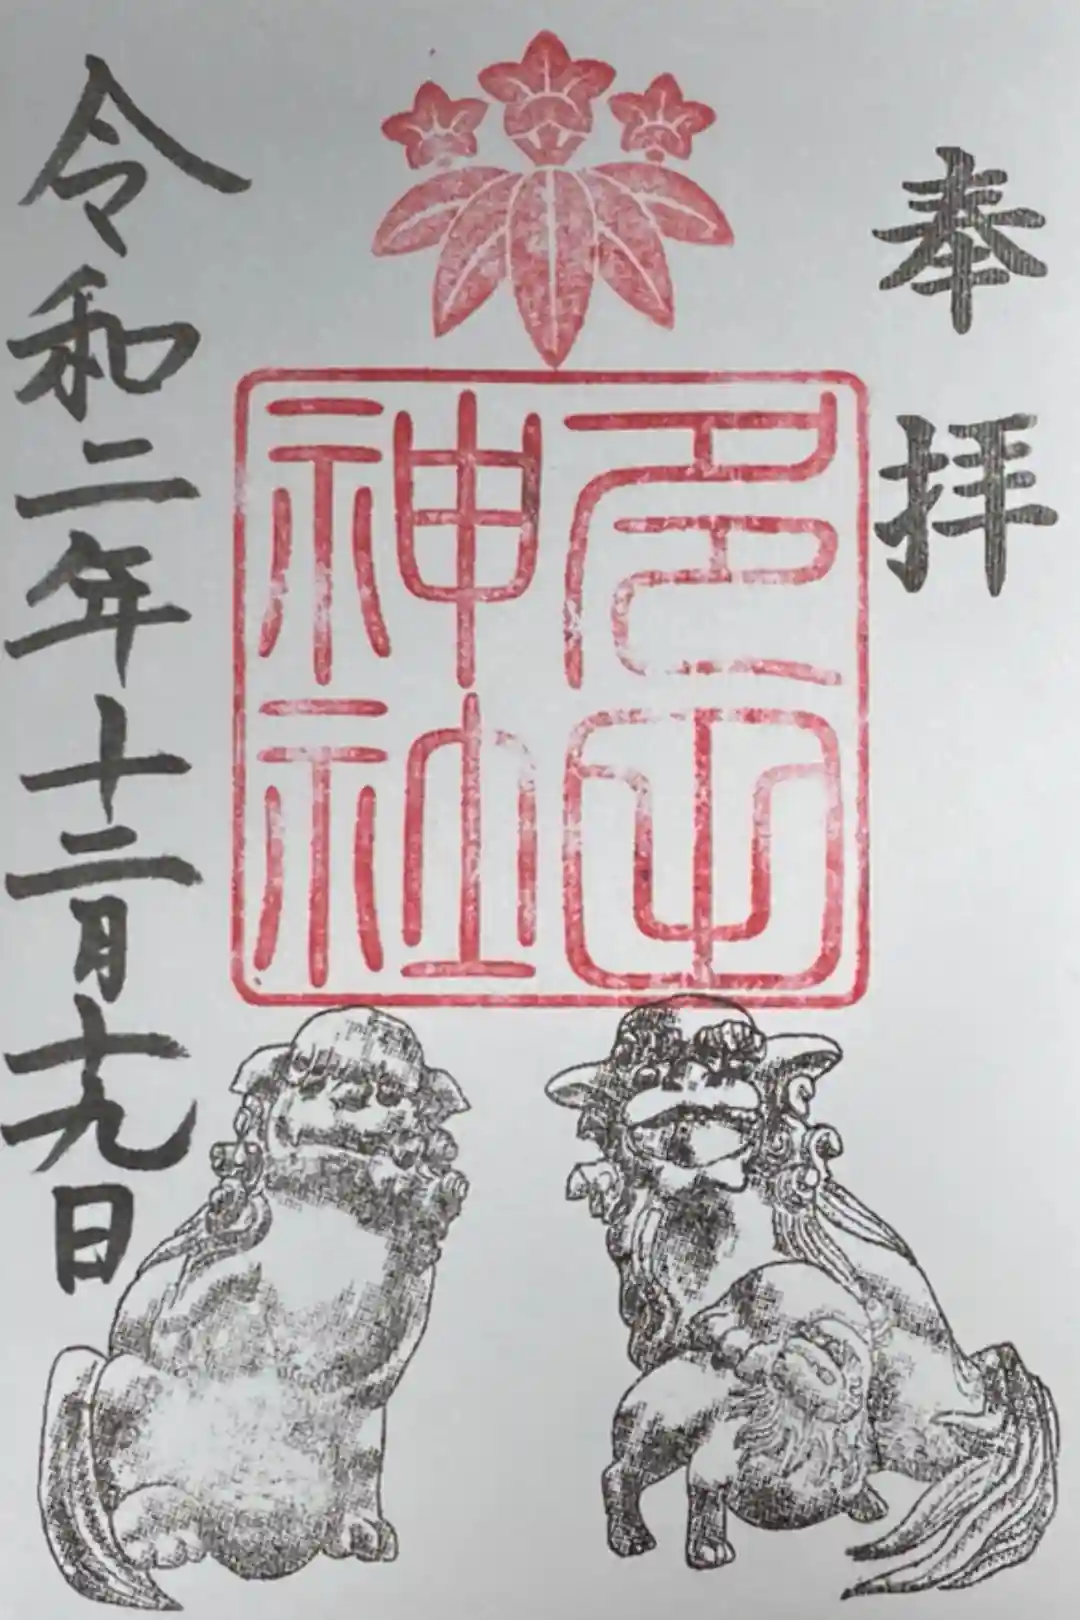 奉拝
多田
神社
令和二年十二月十九日